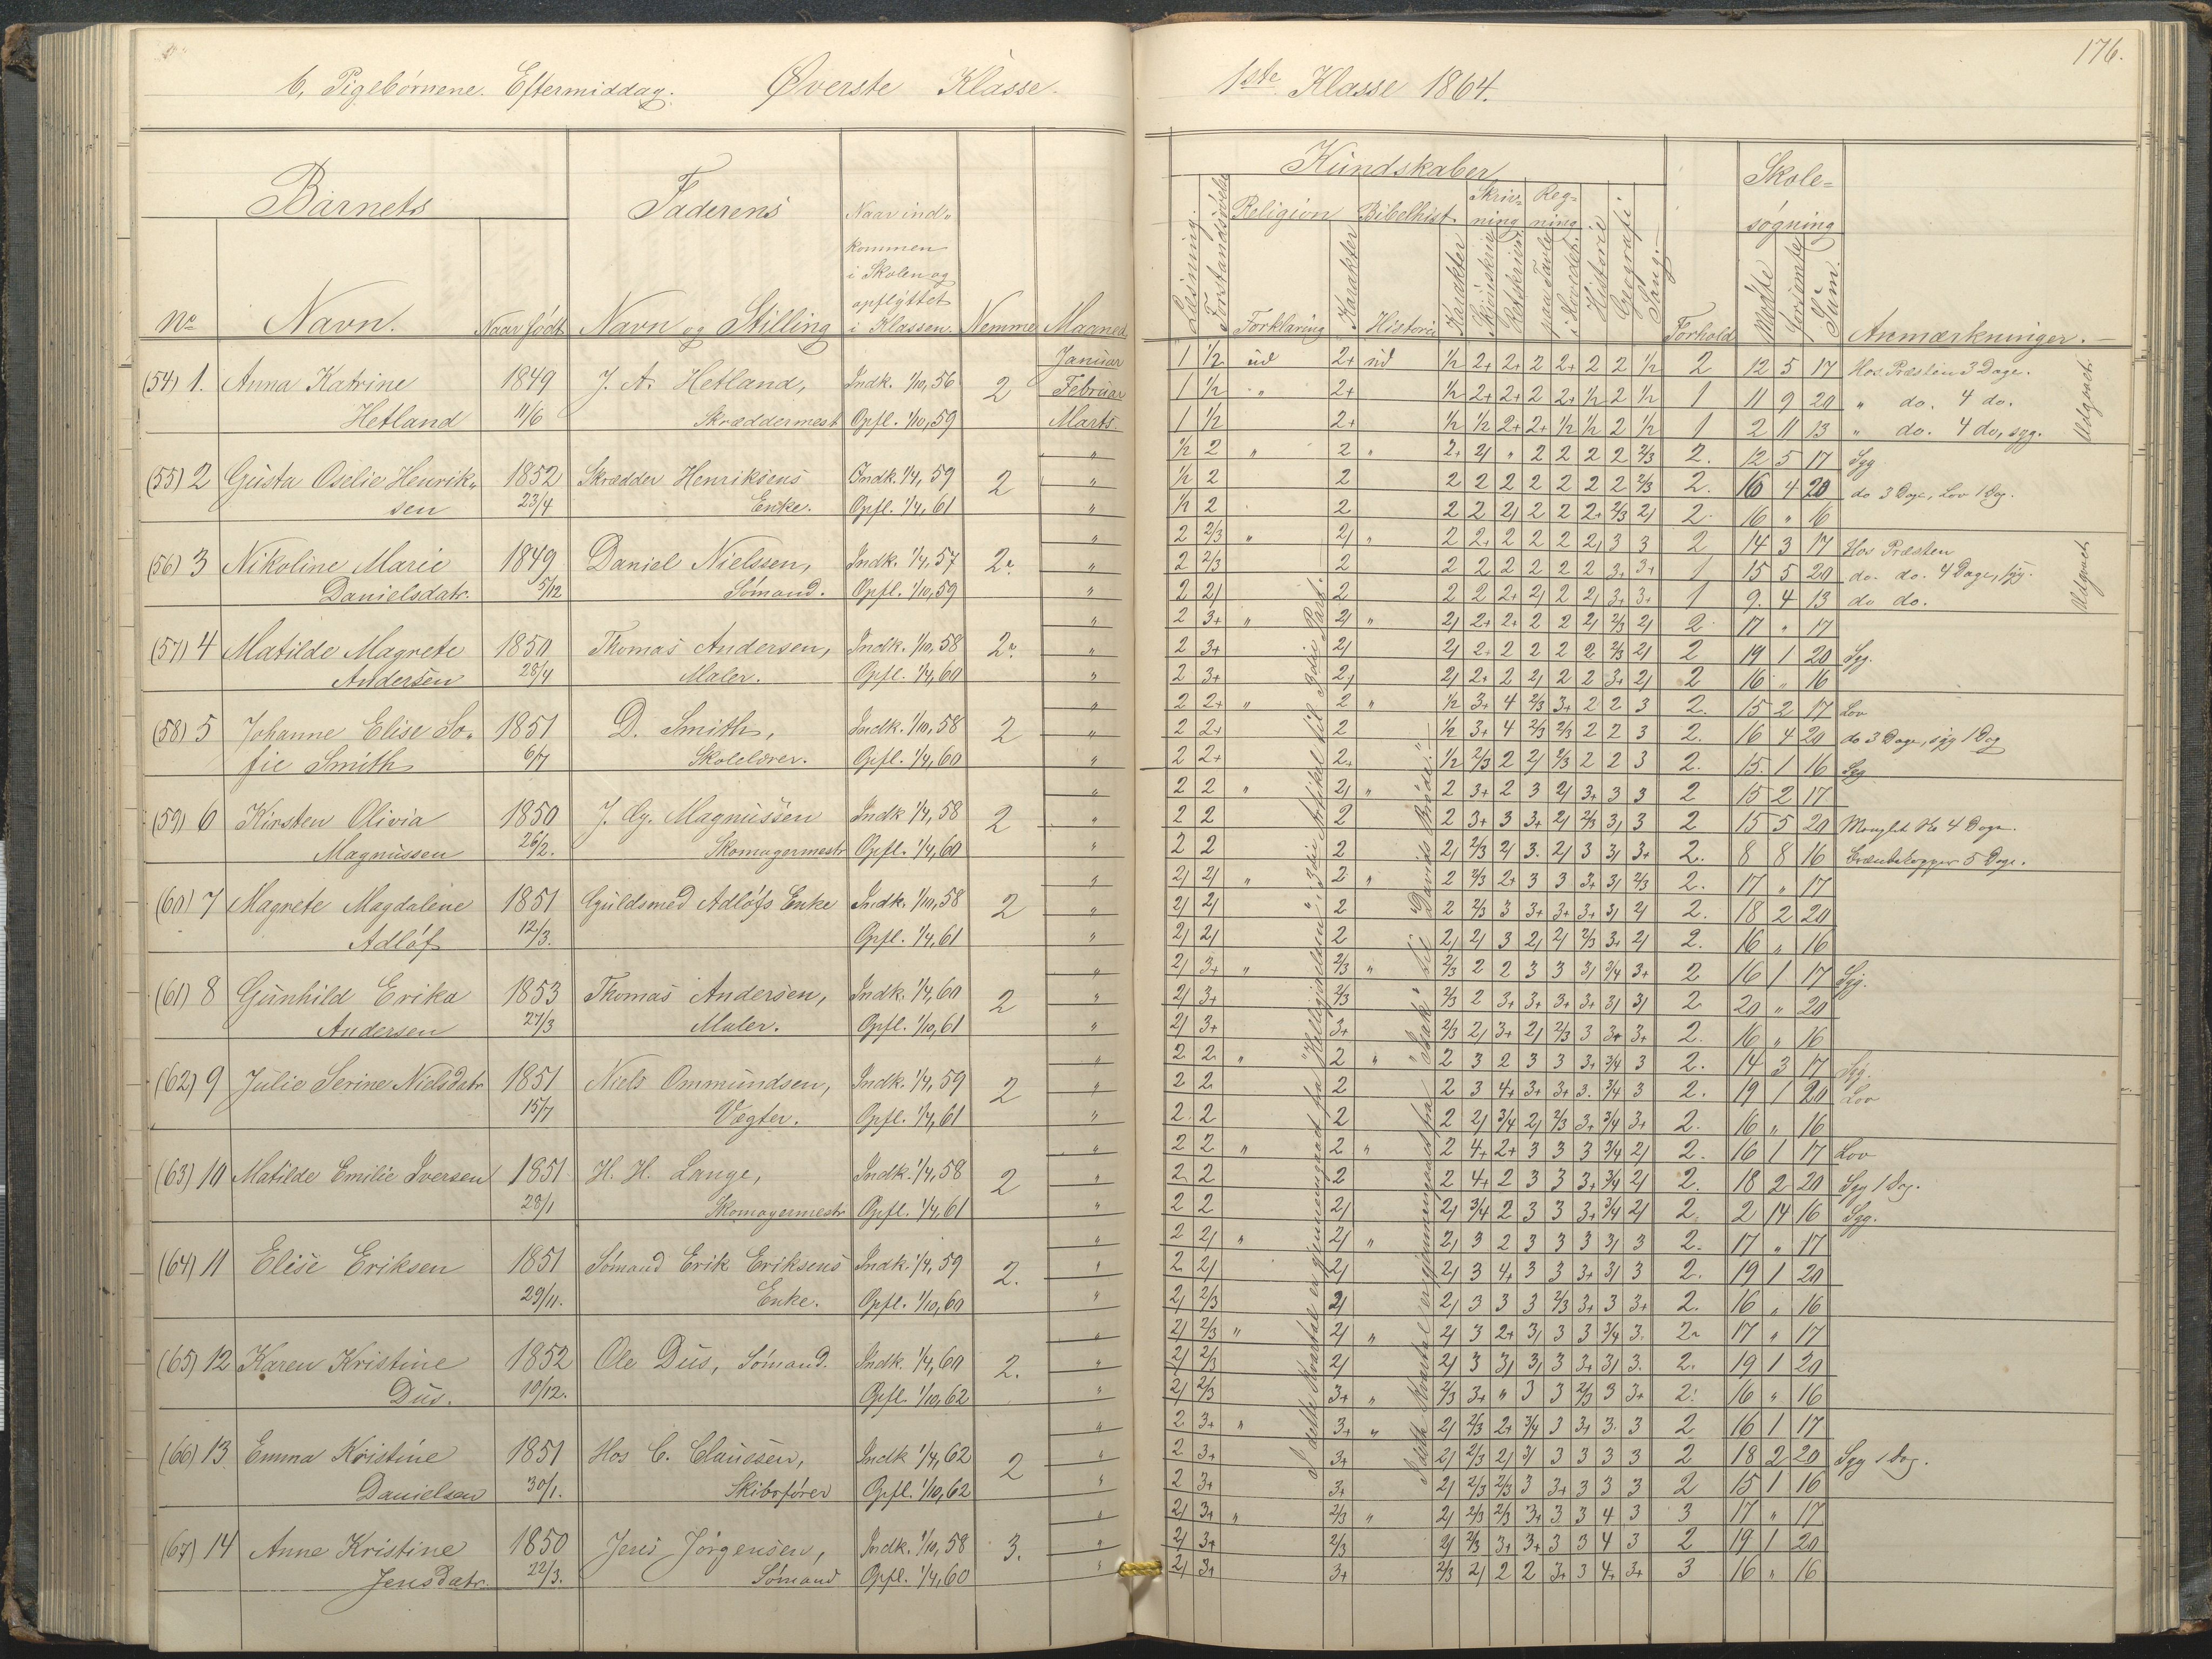 6, Pigebørnene. Eftermiddag. Øverste Klasse.
1ste Klasse 1864.
176.
Barnets
Faderens
Naar ind-
kommen
i Skolen og
opflyttet
i Klassen.
No Navn. Naar født Navn og Stilling Nemme Maaned
Kundskaber
Skole-
søgning
Religion Bibelhist. Skriv-
ning Reg-
ning
Læsning. Forstandsøvelse Forklaring Karakter Historie Karakter Skjønskriv. Retskrivn. paa Tavle i Hovedet. Historie Geografi Sang. Forhold Mødte Forsømte Sum. Anmærkninger.
Januar
(54) 1. Anna Katrine 1849 J. A. Hetland, Indk. 1/10, 56 2 Februar
Hetland 11/6 Skræddermest. Opfl. 1/10, 59 Marts
1 1/2 ud 2+ ud 1/2 2+ 2+ 2 2+ 2 2 1/2 2 12 5 17 Hos Præsten 3 Dage.
1 1/2 " 2+ 1/2 2+ 2+ 2 2+ 1/2 2 1/2 1 11 9 20 " do. 4 do.
1 1/2 2+ 1/2 1/2 2+ 2+ 1/2 1/2 2 1/2 1 2 11 13 " do. 4 do, syg.
Udgaaet.
(55) 2 Gusta Oselie Henrik- 1852 Skrædder Henriksens Indk. 1/4, 59 2 "
sen 23/4 Enke. Opfl. 1/4, 61 "
1/2 2 " 2 " 2+ 2/ " 2 2 2 2 2/3 2. 12 5 17 Syg
1/2 2 2 2 2 2 2 2 2 2 2/3 2. 16 4 20 do 3 Dage, Lov 1 Dag.
1/2 2 2 2 2 2/ 2 2 2+ 2/3 2/ 2 16 " 16
(56) 3 Nikoline Marie 1849 Daniel Nielssen, Indk. 1/4, 57 2. "
Danielsdatr. 5/12 Sømand. Opfl. 1/10, 59 "
2 2/3 " 2/ " 2 2+ 2 2 2 2/ 3 3 2 14 3 17 Hos Præsten
2 2/3 2 2 2 2 2 2 2 3+ 3+ 1 15 5 20 do. do. 4 Dage, syg.
2 2/ 2 2 2 2+ 2/ 2 2/ 3+ 3+ 1 9. 4 13 do do.
Udgaaet.
(57) 4 Matilde Magrete 1850 Thomas Andersen, Indk. 1/10, 58 2. "
Andersen 28/4 Maler. Opfl. 1/4, 60 "
2 3+ " 2/ " 2/ 2+ 2+ 2 2 2/ 2/3 2/ 2 17 " 17
2 3+ 2/ 2/ 2+ 2 2 2 2 2/3 2/ 2 19 1 20 Syg.
2 3+ 2/ 2/ 2+ 2 2/ 2 2 3+ 2/ 2 16 " 16
(58) 5 Johanne Elise So- 1851 D. Smith, Indk. 1/10, 58 2 "
fie Smith 6/7 Skolelærer. Opfl. 1/4, 60 "
2 2+ " 2 " 1/2 3+ 4 2/3 3+ 2 2 3 2. 15 2 17 Lov
2 2+ 2 1/2 3+ 4 2/3 2/3 2 2 3 2. 16 4 20 do 3 Dage, syg 1 Dag
2 2+ 2+ 1/2 2/3 2 2/ 2/3 2 2 3 2. 15 1 16 Syg
(59) 6 Kirsten Olivia 1850 J. Gg. Magnussen Indk 1/4, 58 2 "
Magnussen 26/2. Skomagermestr Opfl. 1/4, 60 "
2 2 " 2/ " 2 3+ 2 3 2/ 3+ 3 3 2 15 2 17
2 2 2 2 3+ 3 3+ 2/ 2/3 3/ 3 2 15 5 20 Manglet Sko 4 Dage.
2 2 2 2/ 2/3 2/ 3. 2/ 3 3/ 3+ 2. 8 8 16 5 Dage.
(60) 7 Magrete Magdalene 1851 Guldsmed Adløfs Enke Indk. 1/10, 58 2 "
Adløf 12/3. Opfl. 1/4, 61 "
2/ 2/ " 2 " 2 2/3 2+ 3 3 3+ 3/ 2/3 2. 17 " 17
2/ 2/ 2 2 2/3 3 3+ 3+ 3+ 3/ 2/ 2. 18 2 20
2/ 2/ 2 2/ 2/ 3 2/ 2/ 2/3 3+ 2/ 2. 16 " 16
(61) 8 Gunhild Erika 1853 Thomas Andersen, Indk. 1/4, 60 2 "
Andersen 27/3 Maler. Opfl. 1/10, 61 "
2/ 3+ " 2/3 " 2/3 2 2 3 3 3/ 3/4 3+ 2 16 1 17 Syg.
2/ 3+ 2/3 2/3 2 3+ 3+ 3+ 3+ 3/ 3/ 2 20 " 20
2/ 3+ 3+ 2/3 2/ 3+ 2/ 2/3 3 3+ 3+ 2. 16 " 16
(62) 9 Julie Serine Nielsdatr 1851 Niels Ommundsen, Indk. 1/4, 59 2 "
15/7 Vægter. Opfl. 1/4, 61 "
2 2 " 2 " 2 3 2 3 3 3+ 3/4 3 2. 14 3 17 Syg.
2 2 2 2 3 4+ 3+ 3+ 3. 3/4 3 2. 19 1 20 Lov
2 2 2 2 2/ 3/4 2/ 2/3 3+ 3/4 3+ 2. 16 " 16
(63) 10 Matilde Emilie Iversen 1851 H. H. Lange, Indk. 1/4, 58 2 "
28/1 Skomagermestr Opfl. 1/4, 61 "
2 2 " 2 " 2 4+ 2+ 3 3 3 3/4 2/ 2. 16 1 17 Lov
2 2 2 2 4+ 2 3 3 3+ 3/4 2/ 2. 18 2 20 Syg 1 Dag.
2 2 2/ 2/ 3/4 2 3 3 3+ 3/4 2/ 2. 2 14 16 Syg.
(64) 11 Elise Eriksen 1851 Sømand Erik Eriksens Indk. 1/4, 59 2. "
29/11. Enke. Opfl. 1/10, 60 "
2 2/ " 2/ " 2/ 3 2 3 3 3 3/ 3 2. 17 " 17
2 2/ 2/ 2/ 3 4+ 3 3 3+ 3/ 3 2. 19 1 20
2/ 2/3 2/ 2/ 3 3 3 2/3 3+ 3 3+ 2. 16 " 16
(65) 12 Karen Kristine 1852 Ole Dus, Sømand. Indk. 1/4, 60 2. "
Dus. 10/12. Opfl. 1/10, 62 "
2/ 2/3 " 2/ " 2/ 3 2+ 3/ 3 3 3/4 3. 2. 17 " 17
2/ 2/3 2/ 2/ 3 3/ 3/ 3 3+ 3/ 3. 2. 19 1 20
2/ 2/3 3+ " 2/3 3+ " 3 3 2/3 3 3+ 2. 16 " 16
(66) 13 Emma Kristine 1851 Hos C. Claussen, Indk 1/4, 62 2 "
Danielsen 30/1. Skibsfører Opfl. 1/10, 62 "
2 3+ " 3+ " 2/ 2/3 2+ 3/4 3 3+ 3. 3 2 16 1 17
2 3+ 3+ 2/ 2/3 2/ 3/ 3 3 3 3 2 18 2 20 Syg 1 Dag.
2 3+ 3+ 2/ 2/3 2/3 3 3+ 3 3 3 2 15 1 16
(67) 14 Anne Kristine 1850 Jens Jørgensen, Indk. 1/10, 58 3. "
Jensdatr. 22/3. Sømand Opfl. 1/4, 60 "
2/ 3+ " 2/3 " 2/ 2/3 2/3 3+ 3 3 4 3 3 17 " 17
2/ 3+ 2/3 2/ 2/3 3+ 3+ 3 3 4 3 2 19 1 20
2/ 3+ 3+ 2/3 2/ 2 2 3+ 3 4+ 3+ 3 16 " 16
I dette Kvartal er gjennemgaaet fra "Helligaanden" i 3die Artikel til 3die Part.
I dette Kvartal er gjennemgaaet fra "Isak" til "Davids Brøde".